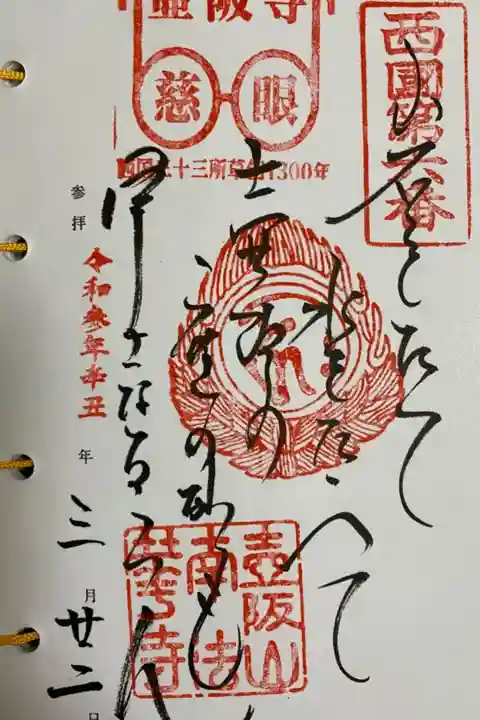 西國第六番
壺阪寺
慈眼
西国三十三所草創1300年
岩をたてて
水をたゝへて
壺阪の
庭の砂も
浄土なるらん
壺阪山
南法
華寺
参拝 令和参年辛丑年三月廿二日